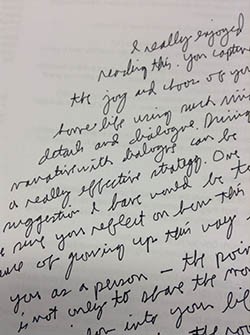 I really enjoyed
reading this. You capture
the joy and chaos of you
home life using such min
details and dialogue. Driving
narrative with dialogue can be
a really effective strategy. One
suggestion I have would be to
sure you reflect on how this
of growing up this way
you as a person – the poin
is not only to share the mo
into your life